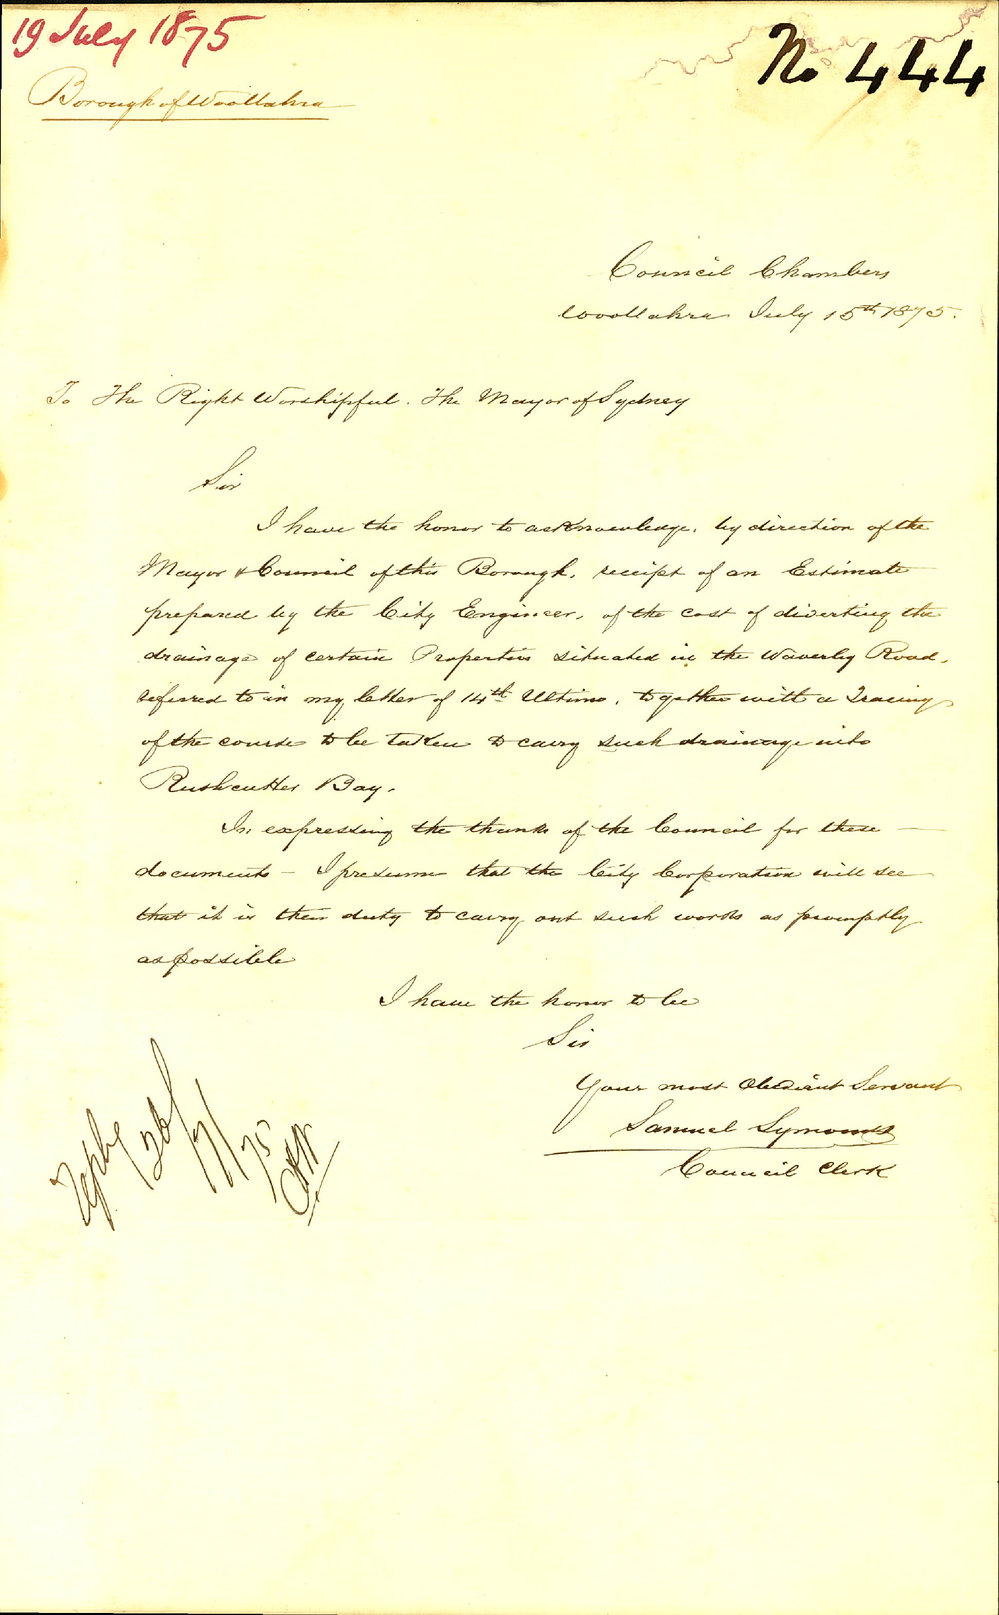 19 July 1875
No 444
Borough of Woollahra
Council Chambers
Woollahra July 15th 1875.
To The Right Worshipful. The Mayor of Sydney
Sir
I have the honor to acknowledge, by direction of the
Mayor & Council of this Borough, receipt of an Estimate
prepared by the City Engineer, of the cost of diverting the
drainage of certain Properties situated in the Waverley Road,
referred to in my letter of 14th Ultimo, together with a Tracing
of the course to be taken to carry such drainage into
Rushcutter Bay.
In expressing the thanks of the Council for these —
documents – I presume that the City Corporation will see
that it is their duty to carry out such works as promptly
as possible
I have the honor to be
Sir
Your most obedient Servant
Samuel Symonds
Council Clerk
26/7/75